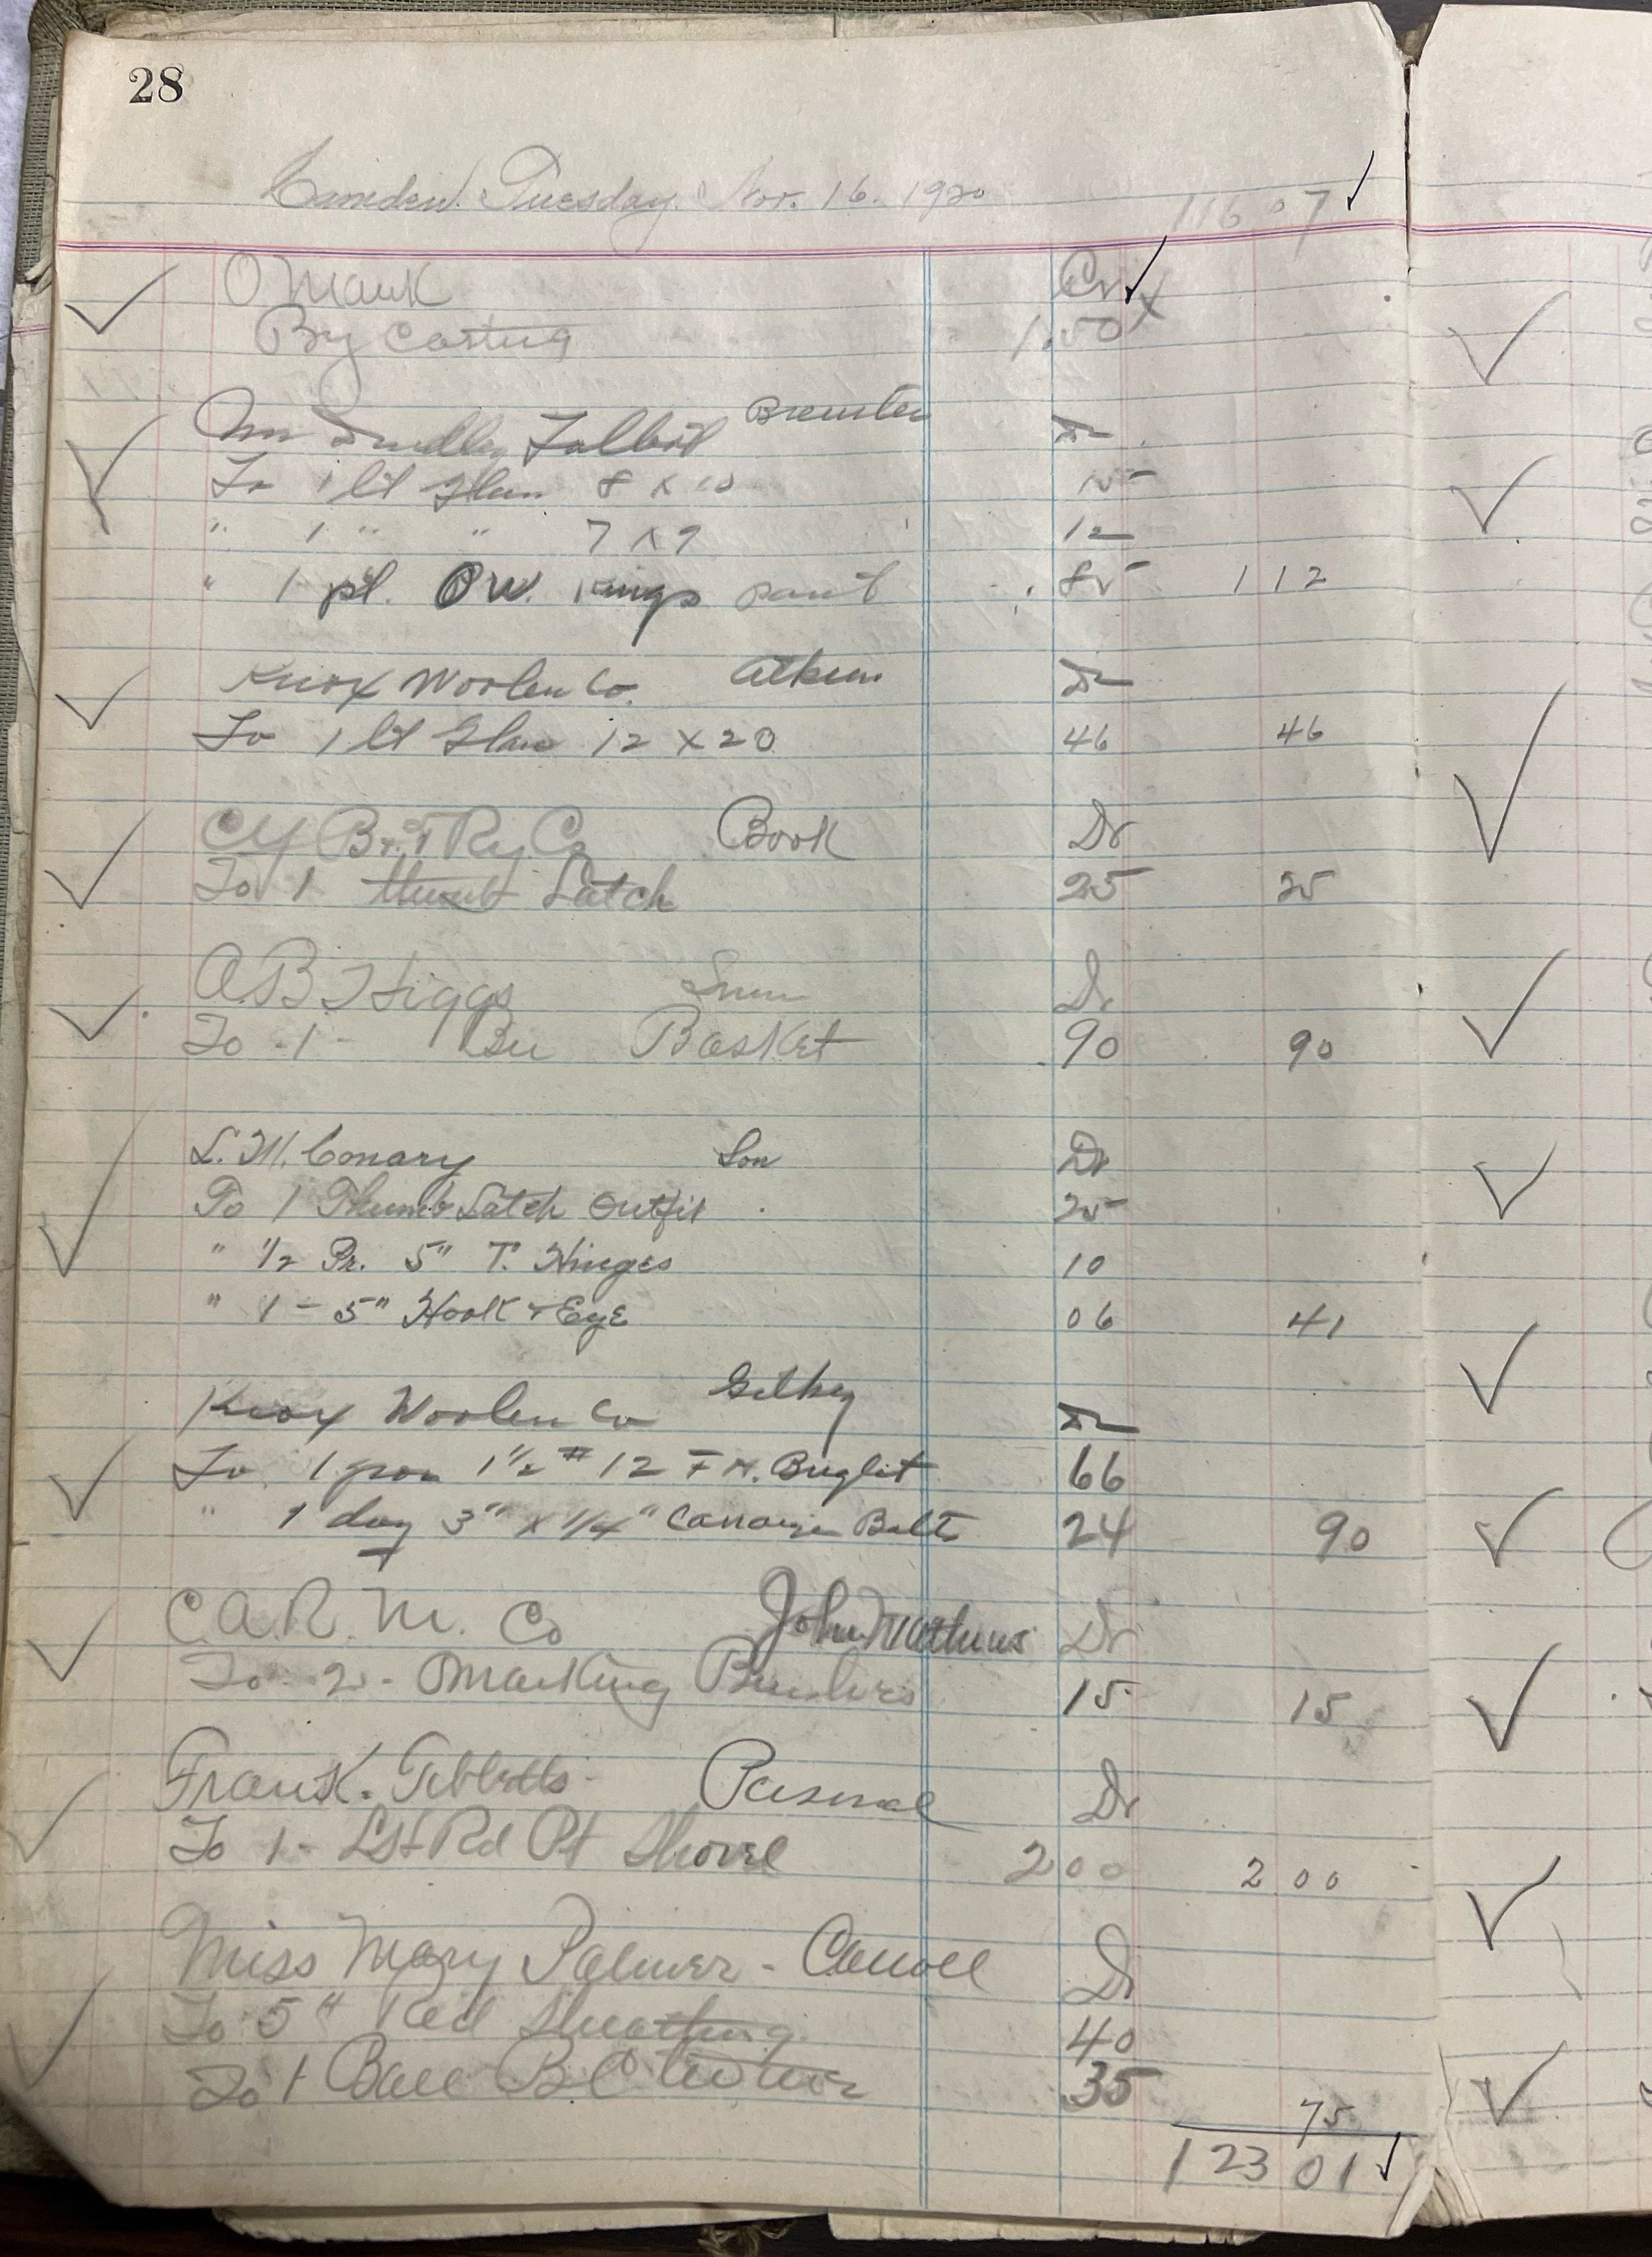 28
Camden. Tuesday. Nov. 16. 1920 116 07
O Mank Cr
By Casting 1.50 X
Dudley Talbot Brewster Dr
To 1 lt Glass 8 x 10 15
" 1 " " 7 x 9 12
" 1 pt. O.W. Kings paint 85 1 12
Knox Woolen Co. Dr
To 1 lt Glass 12 x 20 46 46
Ry Co Book Dr
To 1 thumb Latch 25 25
A.B. Higgs Dr
To 1 - Bu Basket 90 90
L. M. Conary Son Dr
To 1 Thumb Latch Outfit 25
" 1/2 Pr. 5" T. Hinges 10
" 1 - 5" Hook & Eye 06 41
Knox Woolen Co Gilkey Dr
To 1 gross 1 1/2 # 12 F.H. Bright 66
" 1 doz 3" x 1/4" Carriage Bolts 24 90
C.A.R.M. Co John Mathews Dr
To 2 - Marking Brushes 15 15
Frank. Tibbetts Personal Dr
To 1 - Rd Pt Shovel 2 00 2 00
Miss Mary Palmer - Dr
To 5# Red Sheathing 40
To 1 Ball 35
75
123 01